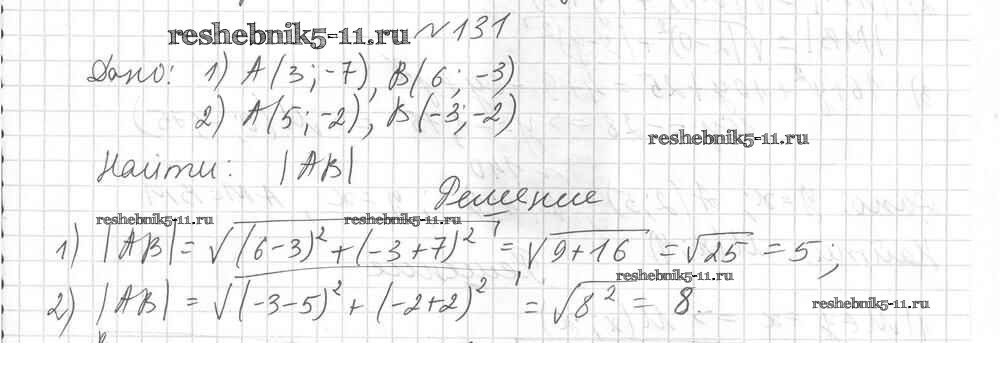 reshebnik5-11.ru №131
Дано: 1) A(3; -7), B(6; -3)
2) A(5; -2), B(-3; -2)
reshebnik5-11.ru
Найти: |AB|
Решение
reshebnik5-11.ru reshebnik5-11.ru
1) |AB| = √((6-3)² + (-3+7)²) = √(9+16) = √25 = 5;
reshebnik5-11.ru
2) |AB| = √((-3-5)² + (-2+2)²) = √8² = 8.
reshebnik5-11.ru